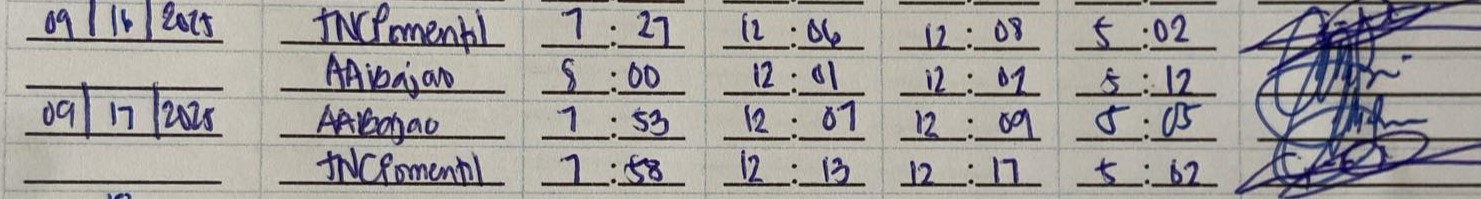 09 | 16 | 2025 JNCPimentil 7 : 27 12 : 06 12 : 08 5 : 02
AAibajao 8 : 00 12 : 01 12 : 02 5 : 12
09 | 17 | 2025 AAibajao 7 : 53 12 : 07 12 : 09 5 : 05
JNCPimentil 7 : 58 12 : 13 12 : 17 5 : 02